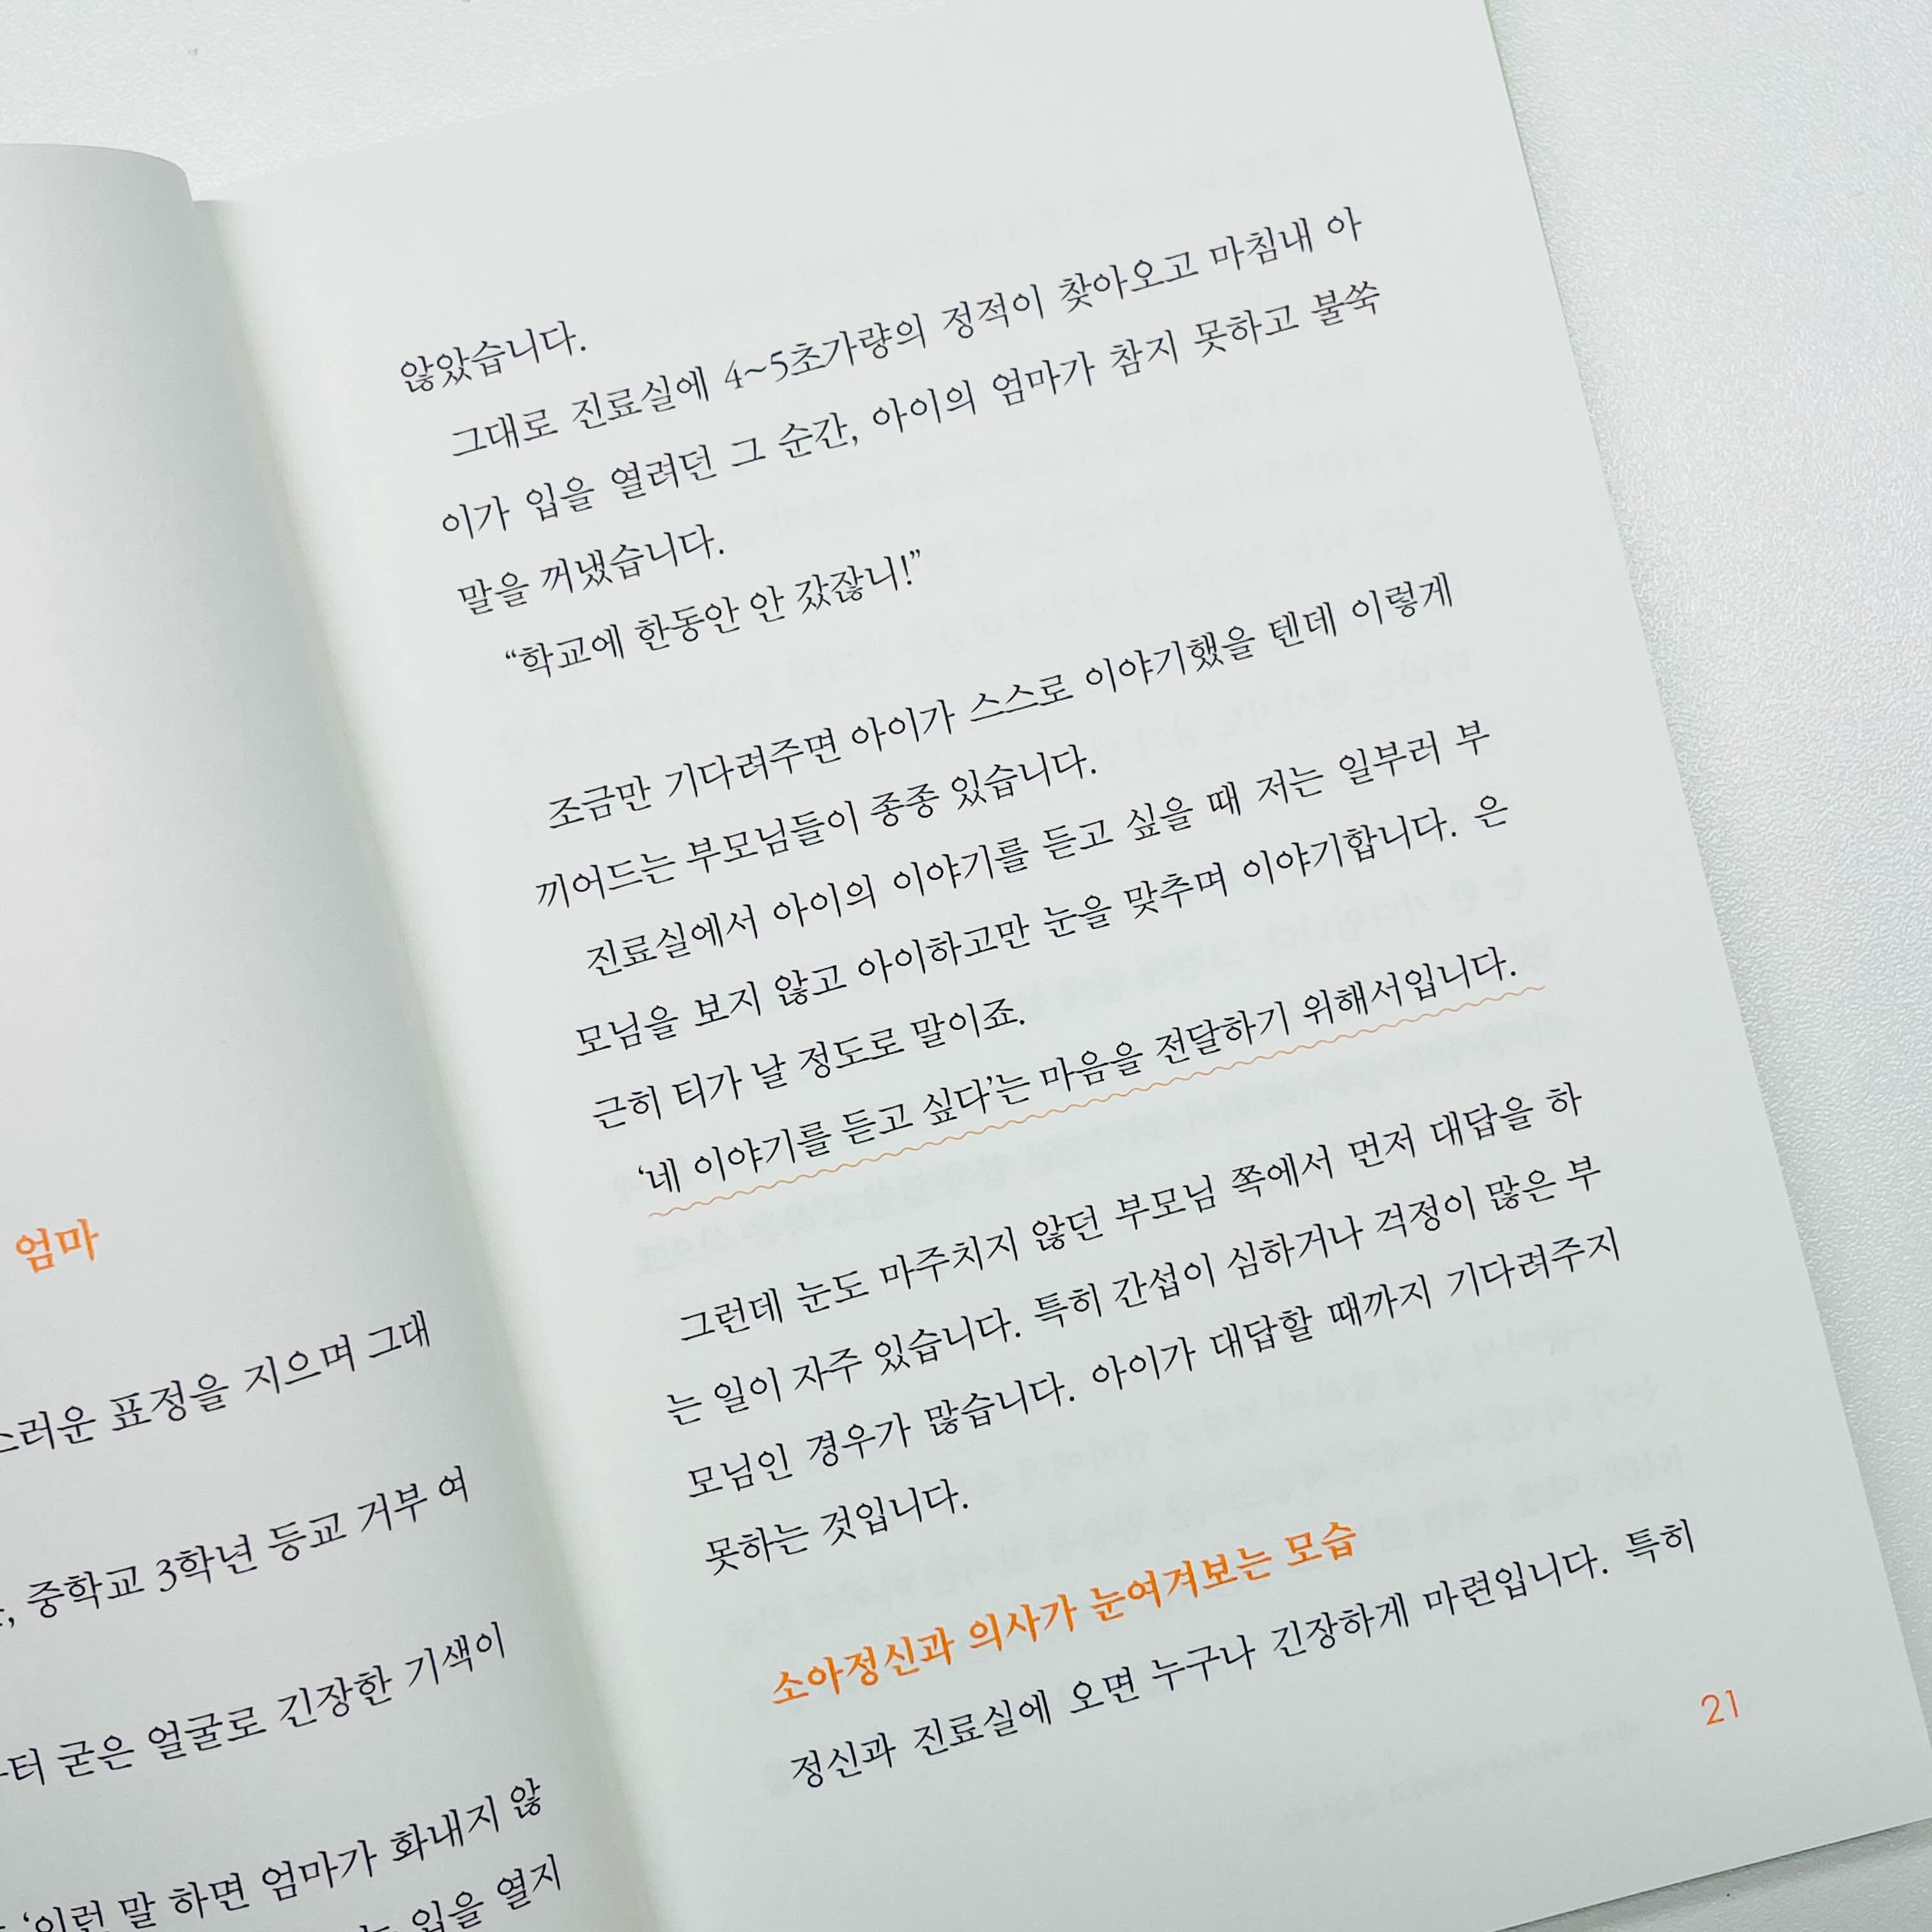 엄마
스러운 표정을 지으며 그대
중학교 3학년 등교 거부 여
굳은 얼굴로 긴장한 기색이
‘이런 말 하면 엄마가 화내지 않
입을 열지
않았습니다.
그대로 진료실에 4~5초가량의 정적이 찾아오고 마침내 아
이가 입을 열려던 그 순간, 아이의 엄마가 참지 못하고 불쑥
말을 꺼냈습니다.
“학교에 한동안 안 갔잖니!”
조금만 기다려주면 아이가 스스로 이야기했을 텐데 이렇게
끼어드는 부모님들이 종종 있습니다.
진료실에서 아이의 이야기를 듣고 싶을 때 저는 일부러 부
모님을 보지 않고 아이하고만 눈을 맞추며 이야기합니다. 은
근히 티가 날 정도로 말이죠.
‘네 이야기를 듣고 싶다’는 마음을 전달하기 위해서입니다.
그런데 눈도 마주치지 않던 부모님 쪽에서 먼저 대답을 하
는 일이 자주 있습니다. 특히 간섭이 심하거나 걱정이 많은 부
모님인 경우가 많습니다. 아이가 대답할 때까지 기다려주지
못하는 것입니다.
소아정신과 의사가 눈여겨보는 모습
정신과 진료실에 오면 누구나 긴장하게 마련입니다. 특히
21